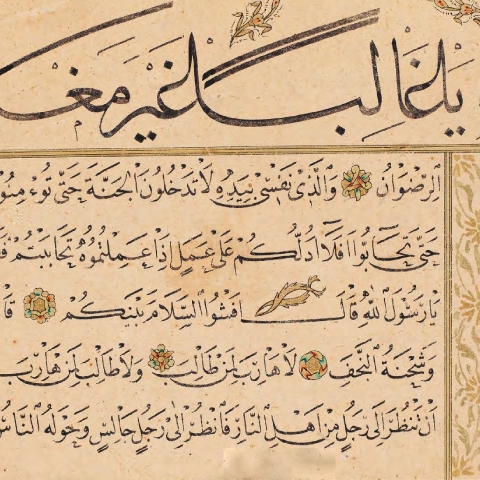 يا غالبا غير
الرِّضْوَانُ وَالَّذِي نَفْسِي بِيَدِهِ لَا تَدْخُلُونَ الْجَنَّةَ حَتَّى تُؤْمِنُو
حَتَّى تَحَابُّوا اَفَلَا اَدُلُّكُمْ عَلَى عَمَلٍ اِذَا عَمِلْتُمُوهُ تَحَابَبْتُمْ
يَا رَسُولَ اللهِ قَالَ اَفْشُوا السَّلَامَ بَيْنَكُمْ
وَشِحْنَةُ النَّجَفِ لَا هَارِبَ لِمَنْ طَالِبٌ وَلَا طَالِبَ لِمَنْ هَارِبٌ
اَنْ تَنْظُرَ اِلَى رَجُلٍ مِنْ اَهْلِ النَّارِ فَانْظُرْ اِلَى رَجُلٍ جَالِسٍ وَحَوْلَهُ النَّاسُ